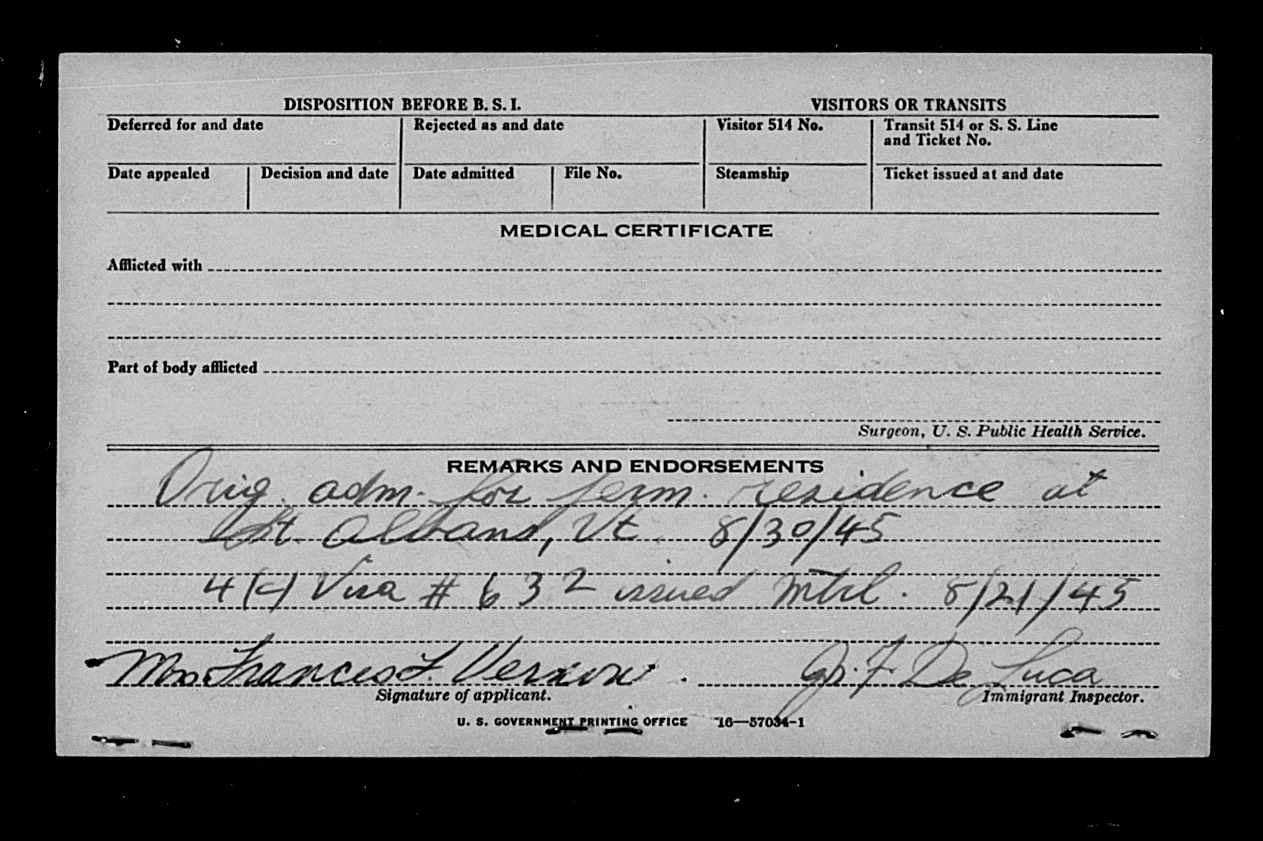 DISPOSITION BEFORE B. S. I. VISITORS OR TRANSITS
Deferred for and date Rejected as and date Visitor 514 No. Transit 514 or S. S. Line
and Ticket No.
Date appealed Decision and date Date admitted File No. Steamship Ticket issued at and date
MEDICAL CERTIFICATE
Afflicted with
Part of body afflicted
Surgeon, U. S. Public Health Service.
REMARKS AND ENDORSEMENTS
Orig. adm. for perm. residence at
St. Albans, Vt. 8/30/45
4(c) Visa # 632 issued Mtrl. 8/21/45
Mrs Frances F. Vernon. F. De Luca
Signature of applicant. Immigrant Inspector.
U. S. GOVERNMENT PRINTING OFFICE 16—57034-1